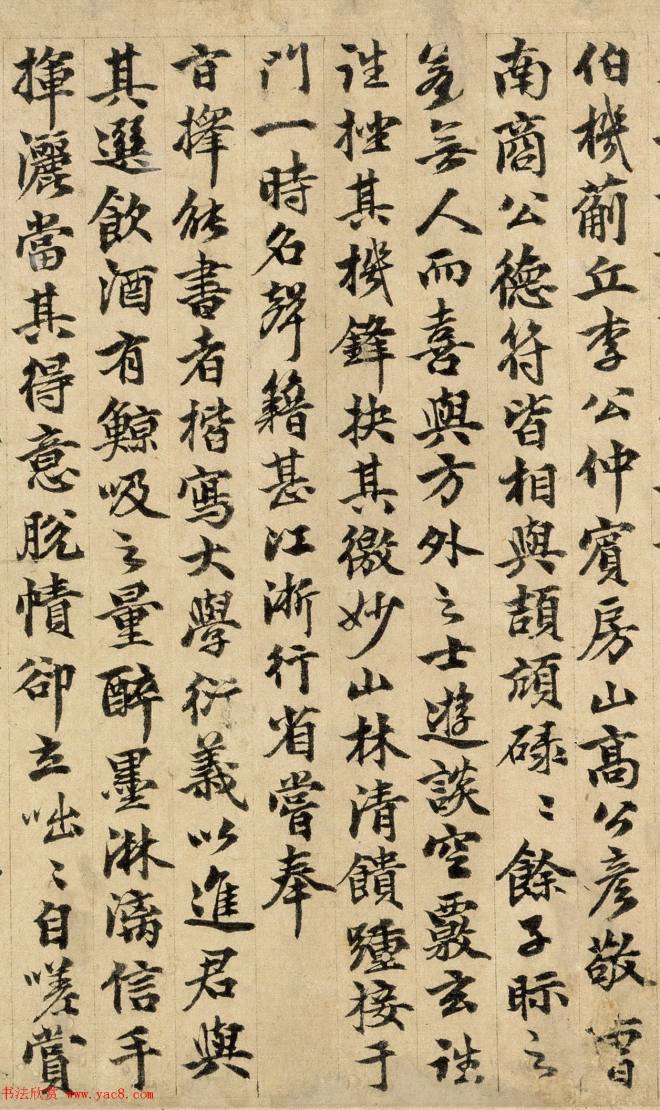 伯機薊丘李公仲賓房山高公彥敬曹
南商公德符皆相與頡頏碌〻餘子眎之
若無人而喜與方外之士遊談空覈玄詆
挫其機鋒抉其微妙山林清饋踵接于
門一時名聲籍甚江淅行省嘗奉
旨擇能書者楷寫大學衍義以進君與
其選飲酒有鯨吸之量醉墨淋漓信手
揮灑當其得意脫幘卻立咄〻自嗟賞
书法欣赏 www.yac8.com